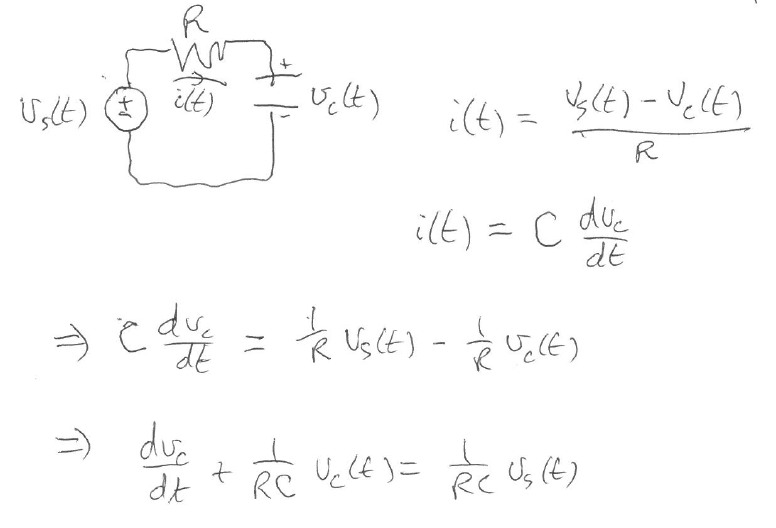 R
+
v_s(t) ± i(t) v_c(t)
-
i(t) = (v_s(t) - v_c(t)) / R
i(t) = C dv_c/dt
⇒ C dv_c/dt = 1/R v_s(t) - 1/R v_c(t)
⇒ dv_c/dt + 1/RC v_c(t) = 1/RC v_s(t)